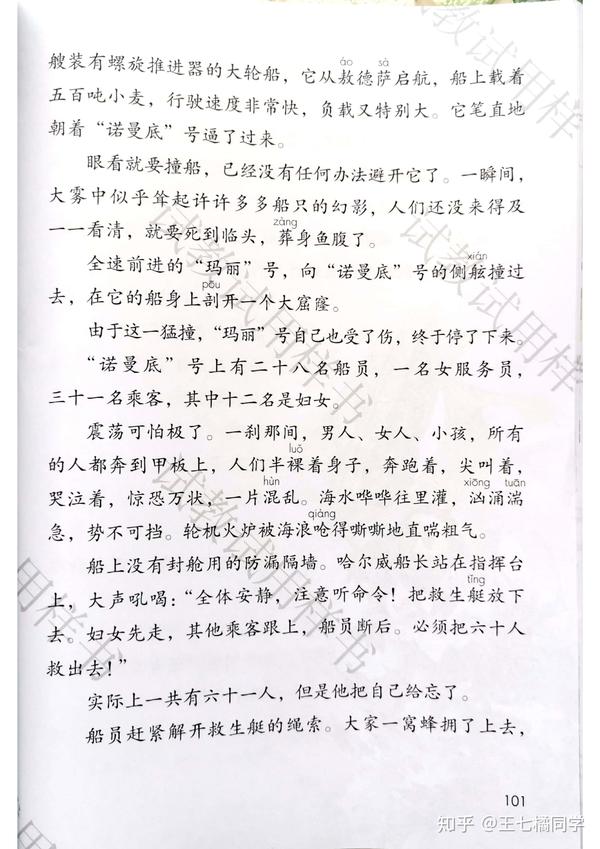 艘装有螺旋推进器的大轮船，它从敖德萨启航，船上载着
áo sà
五百吨小麦，行驶速度非常快，负载又特别大。它笔直地
朝着“诺曼底”号逼了过来。
眼看就要撞船，已经没有任何办法避开它了。一瞬间，
大雾中似乎耸起许许多多船只的幻影，人们还没来得及
一一看清，就要死到临头，葬身鱼腹了。
zàng
全速前进的“玛丽”号，向“诺曼底”号的侧舷撞过
xián
去，在它的船身上剖开一个大窟窿。
pōu
由于这一猛撞，“玛丽”号自己也受了伤，终于停了下来。
“诺曼底”号上有二十八名船员，一名女服务员，
三十一名乘客，其中十二名是妇女。
震荡可怕极了。一刹那间，男人、女人、小孩，所有
的人都奔到甲板上，人们半裸着身子，奔跑着，尖叫着，
luǒ
哭泣着，惊恐万状，一片混乱。海水哗哗往里灌，汹涌湍
hùn xiōng tuān
急，势不可挡。轮机火炉被海浪呛得嘶嘶地直喘粗气。
qiàng
船上没有封舱用的防漏隔墙。哈尔威船长站在指挥台
上，大声吼喝：“全体安静，注意听命令！把救生艇放下
tǐng
去。妇女先走，其他乘客跟上，船员断后。必须把六十人
救出去！”
实际上一共有六十一人，但是他把自己给忘了。
船员赶紧解开救生艇的绳索。大家一窝蜂拥了上去，
101
知乎 @王七橘同学
试教试用样书
试教试用样书
试教试用样书
试教试用样书
用样书